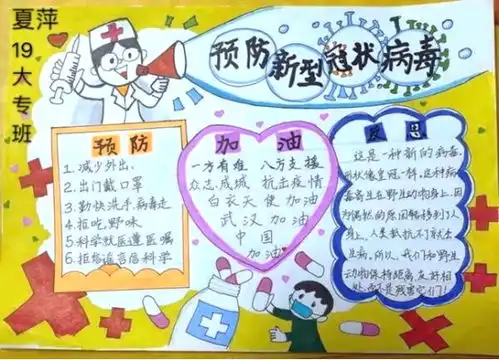 夏萍
19
大专班
预防新型冠状病毒
预防
1.减少外出.
2.出门戴口罩
3.勤快洗手病毒走
4.拒吃野味
5.科学就医遵医嘱
6.拒绝谣言信科学
加油
一方有难 八方支援
众志成城 抗击疫情
白衣天使 加油
武汉加油
中国
加油
反思
这是一种新的病毒,
形状像皇冠一样,这种病
毒寄生在野生动物身上,因
为偶然的原因转移到了人
身上,人类抵抗不了就会
生病。所以,我们和野生
动物保持距离,友好相
处,而不是残害它们!